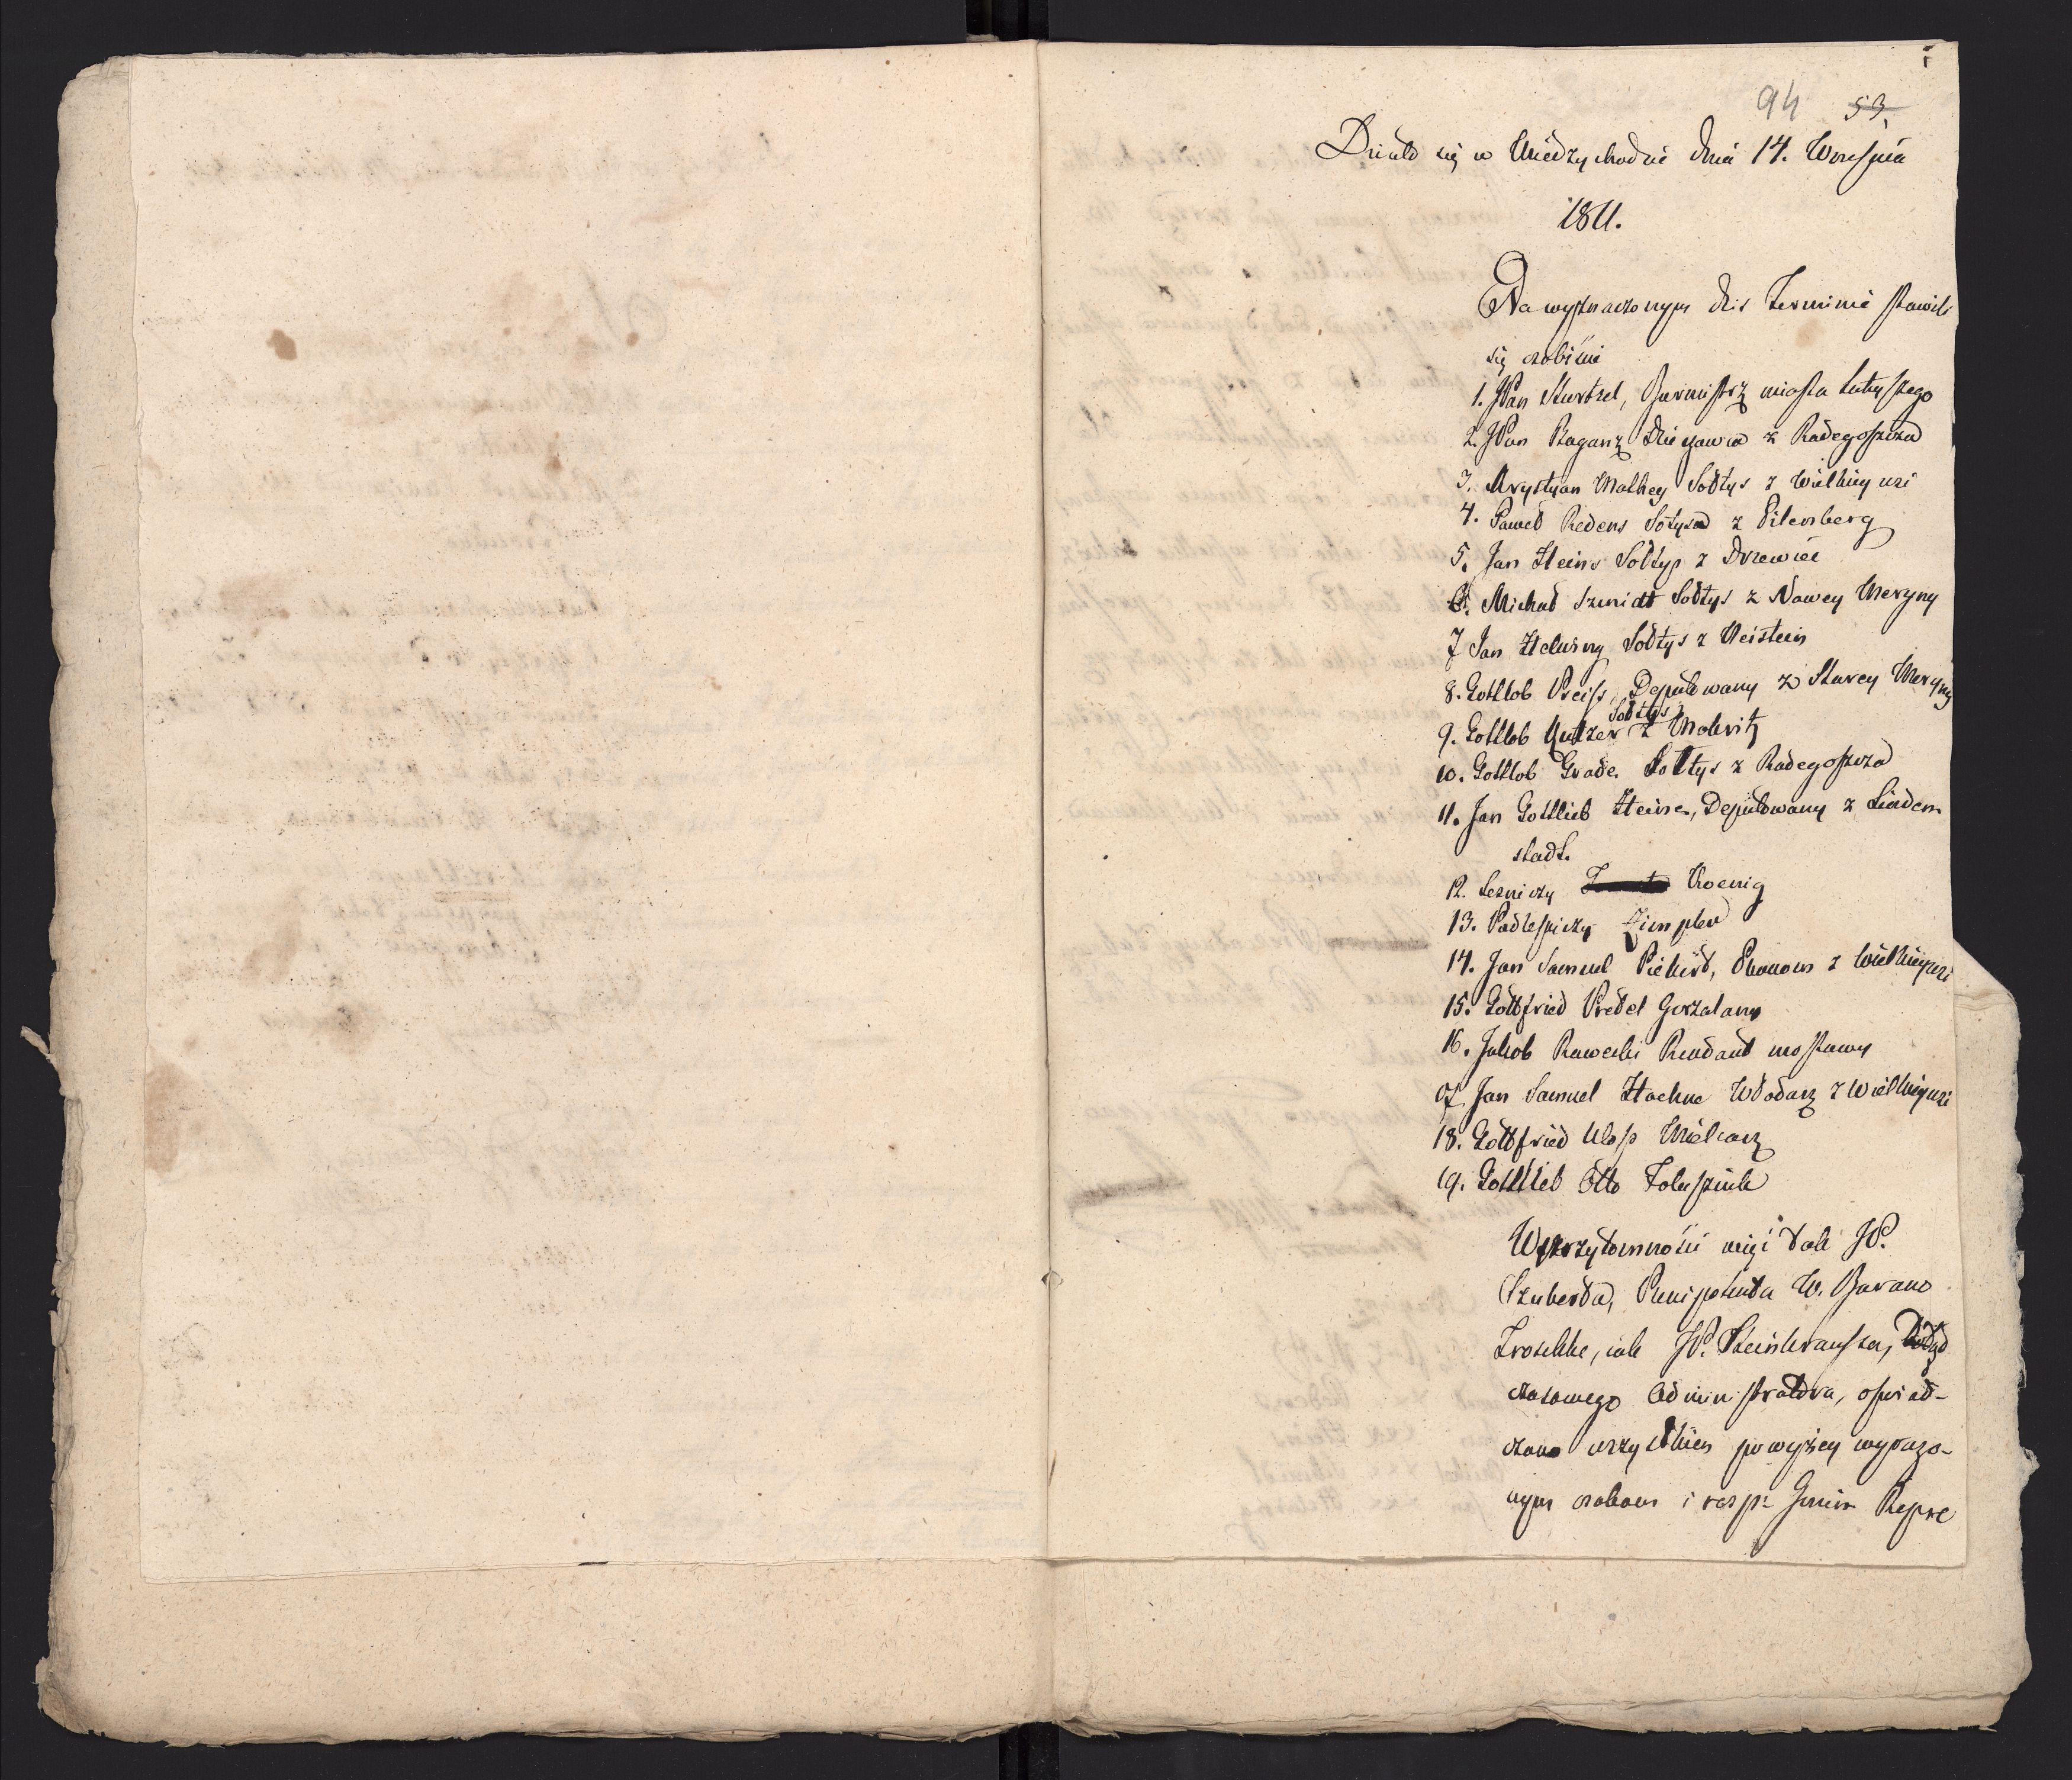 94 53.
Działo się w Międzychodzie dnia 14. Września
1811.
Na wyznaczonym dziś Terminie stawili
się osobiście
1. JPan Sturtzel, Burmistrz miasta tuteyszego
2. JPan Raganz Dzierzawca z Radegoszcza
3. Krystyan Mathey Sołtys z Wielkiey wsi
4. Paweł Redens Sołtys z Eilenberg
5. Jan Heins Sołtys z Drzewiec
6. Michał Szmidt Sołtys z Nowey Meryny
7 Jan Helwing Sołtys z Neistein
8. Gottlob Preiss, Deputowany z Starey Meryny
Sołtys
9. Gottlob Kutzer z Mokritz
10. Gottlob Grade. Sołtys z Radegoszcza
11. Jan Gottlieb Heinse, Deputowany z Linden
stadt.
12. Leśniczy Koenig
13. Podleśniczy Zimpler
14. Jan Samuel Piekert, Ekonom z Wielkieywsi
15. Gottfried Predel Gorzalany
16. Jakob Rawecki Rendant mostowy
17. Jan Samuel Haehne Włodarz z Wielkieywsi
18. Gottfried Kloss Mielcarz
19. Gottlieb Otto Folusznik
W przytomności więc tak JP.
Szuberta, Plenipotenta W. Barano
Troschke, iak JP. Steinkrausza,
czasowego Administratora, oświad-
czono wszystkim powyżey wyrażo-
nym osobom i resp: Gmin Repre